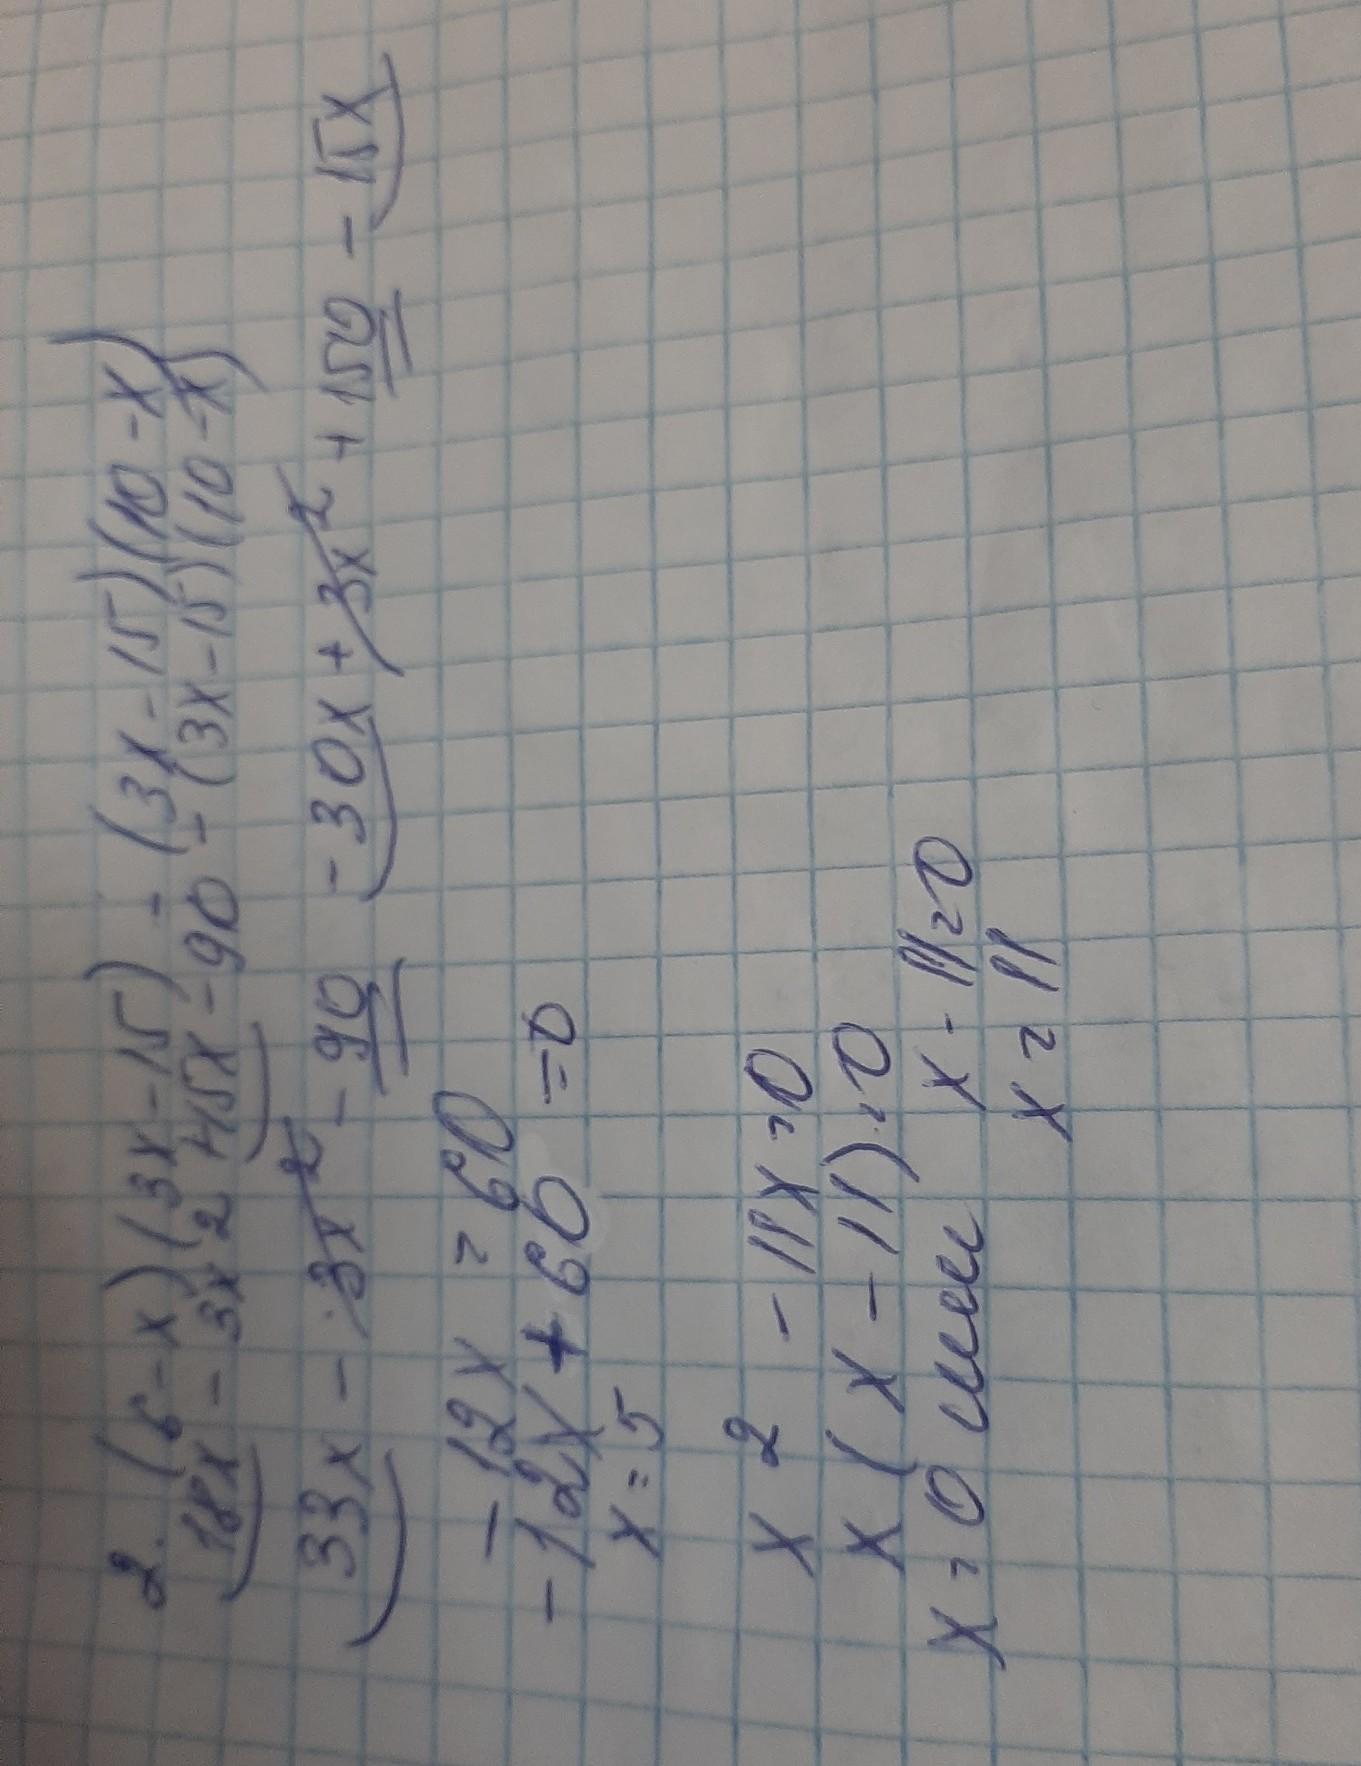 2. (6-x)(3x-15) - (3x-15)(10-x)
18x - 3x² + 45x - 90 - (3x-15)(10-x)
33x - 3x² - 90 - 30x + 3x² + 150 - 15x
-12x = 60
-12x + 60 = 0
x = 5
x² - 11x = 0
x(x - 11) = 0
x = 0 или x - 11 = 0
x = 11